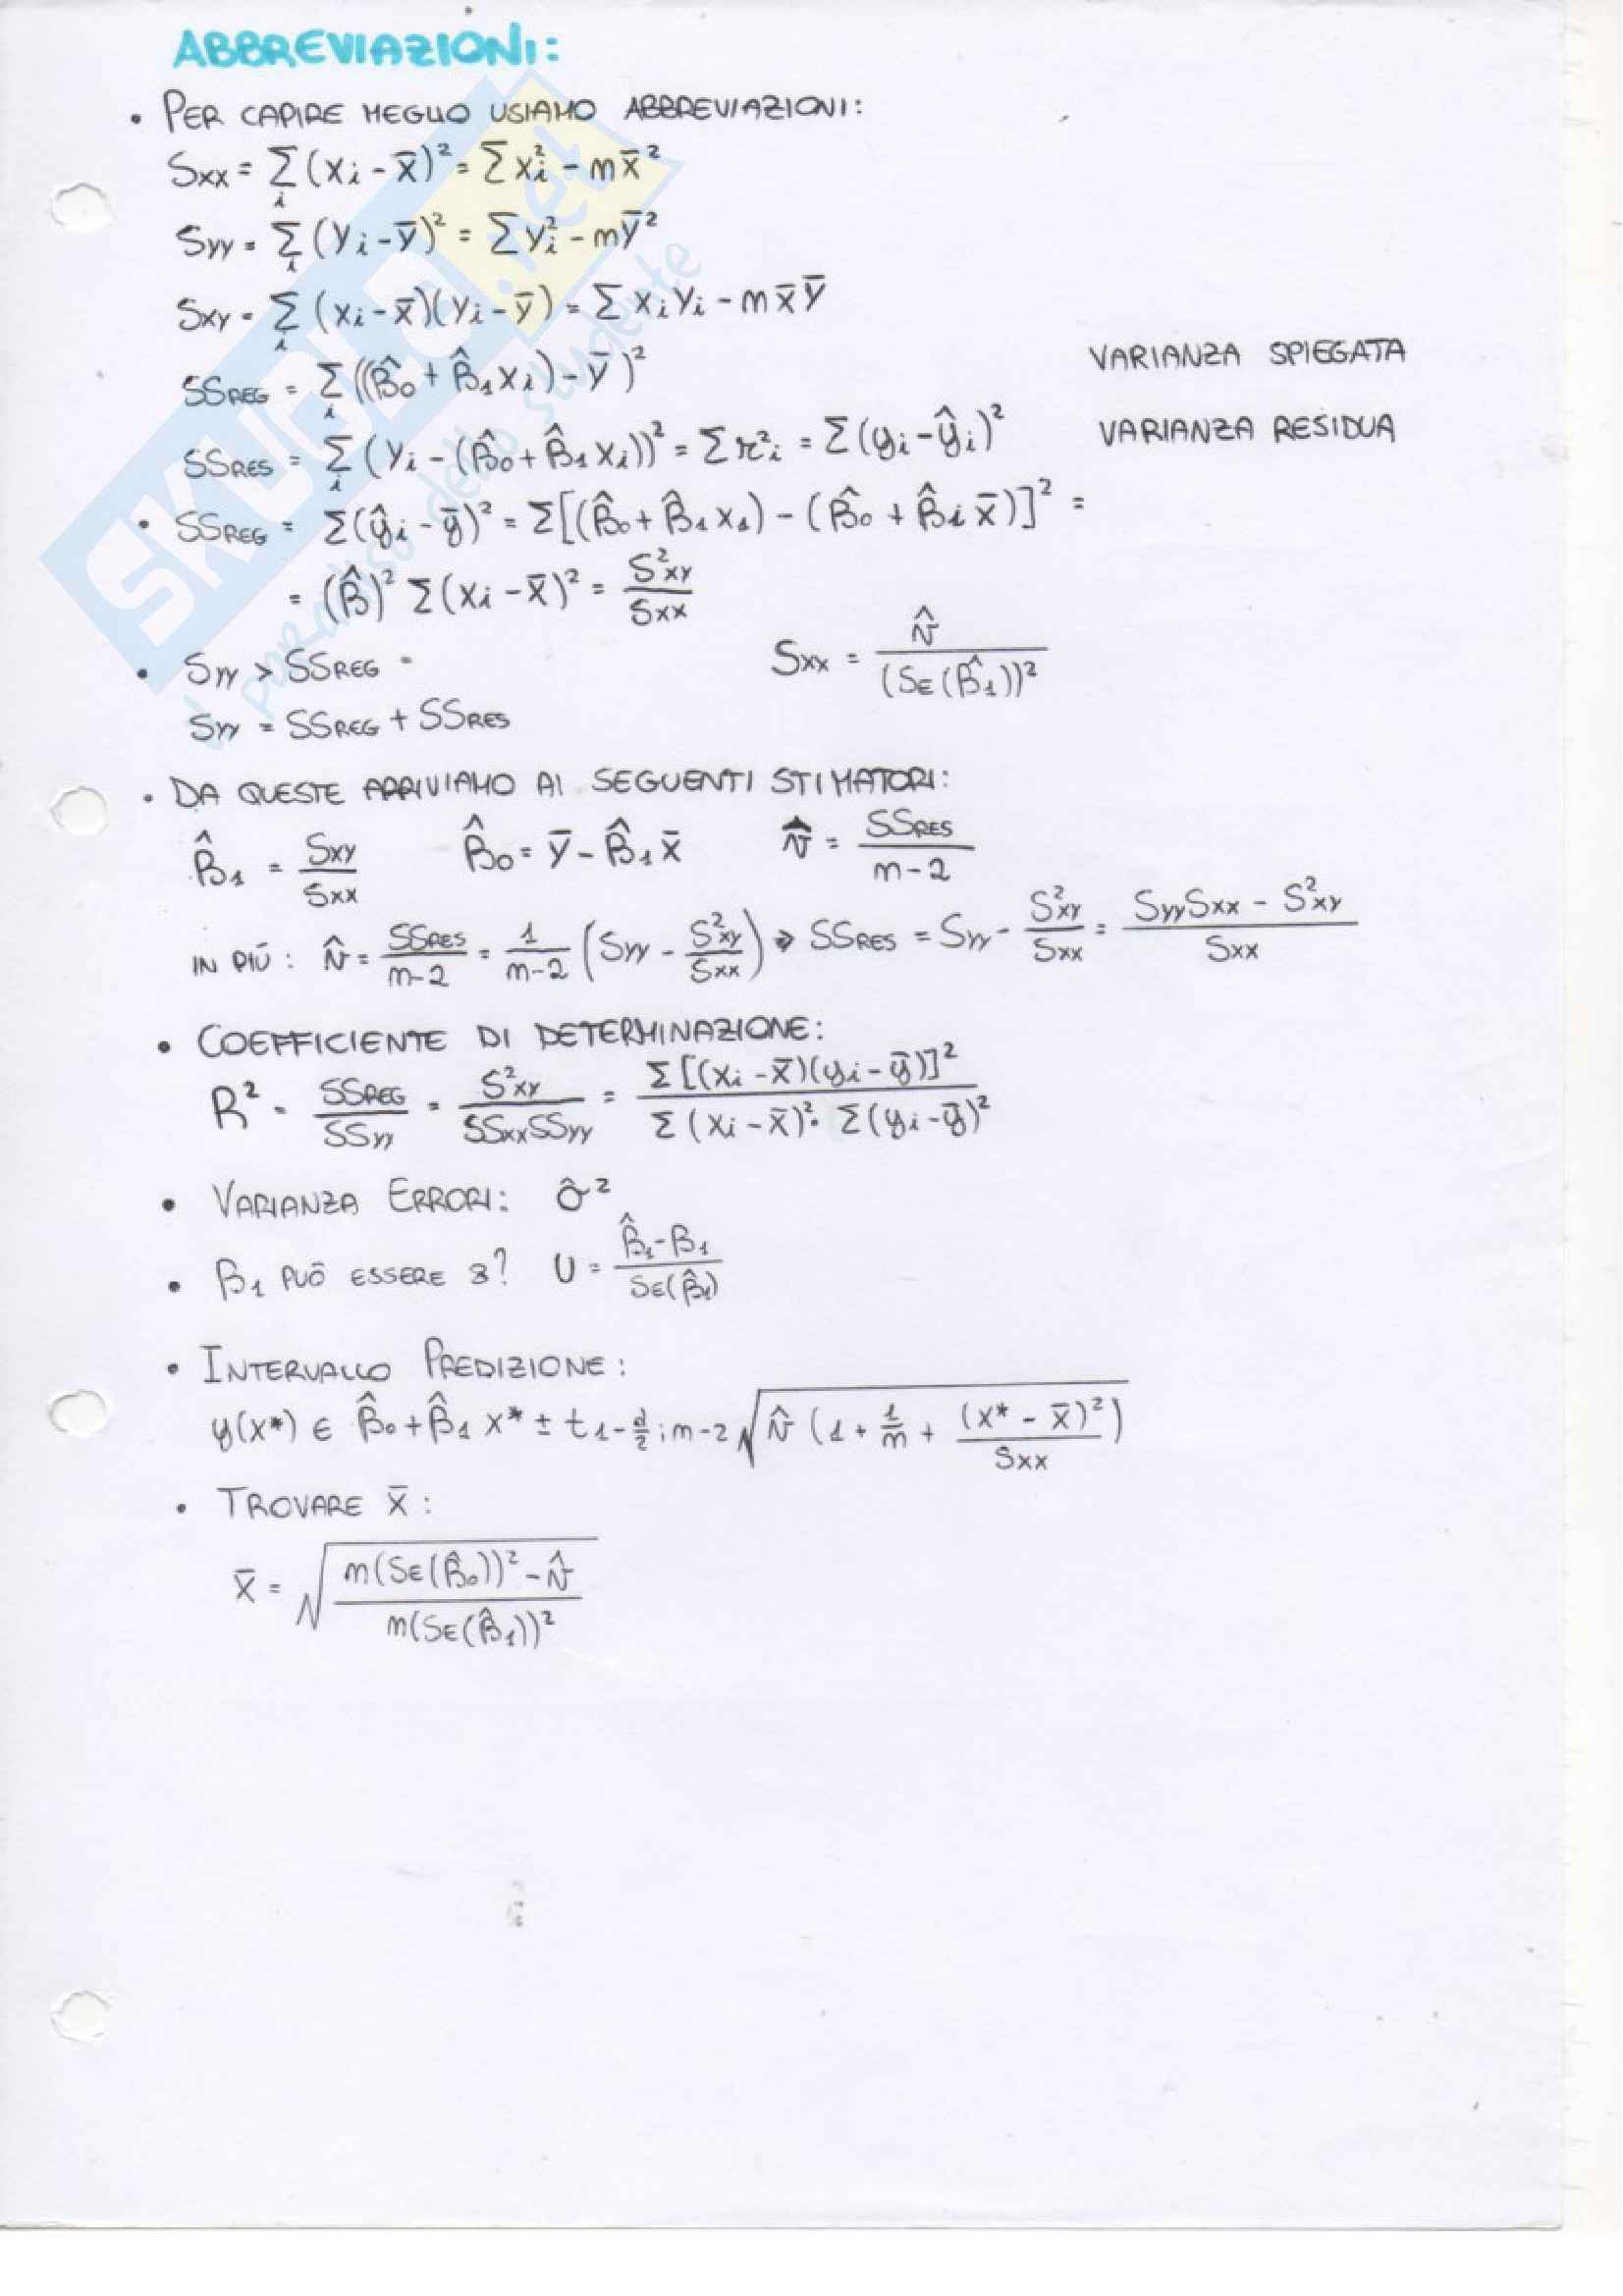 ABBREVIAZIONI:
• PER CAPIRE MEGLIO USIAMO ABBREVIAZIONI:
Sxx = Σ_i (xi - x̄)² = Σ xi² - m x̄²
Syy = Σ_i (yi - ȳ)² = Σ yi² - m ȳ²
Sxy = Σ_i (xi - x̄)(yi - ȳ) = Σ xi yi - m x̄ ȳ
SSREG = Σ_i ((β̂0 + β̂1 xi) - ȳ)² VARIANZA SPIEGATA
SSRES = Σ_i (yi - (β̂0 + β̂1 xi))² = Σ r²i = Σ (yi - ŷi)² VARIANZA RESIDUA
• SSREG = Σ(ŷi - ȳ)² = Σ[(β̂0 + β̂1 x1) - (β̂0 + β̂i x̄)]² =
= (β̂)² Σ(xi - x̄)² = S²xy / Sxx
• Syy > SSREG Sxx = v̂ / (SE(β̂1))²
Syy = SSREG + SSRES
• DA QUESTE ARRIVIAMO AI SEGUENTI STIMATORI:
β̂1 = Sxy / Sxx β̂0 = ȳ - β̂1 x̄ v̂ = SSRES / m-2
IN PIÚ: v̂ = SSRES / m-2 = 1 / m-2 (Syy - S²xy / Sxx) → SSRES = Syy - S²xy / Sxx = SyySxx - S²xy / Sxx
• COEFFICIENTE DI DETERMINAZIONE:
R² = SSREG / SSyy = S²xy / SSxxSSyy = Σ [(xi - x̄)(yi - ȳ)]² / Σ (xi - x̄)² · Σ(yi - ȳ)²
• VARIANZA ERRORI: σ̂²
• β1 PUÓ ESSERE 3? U = β̂1 - β1 / SE(β̂1)
• INTERVALLO PREDIZIONE:
y(x*) ∈ β̂0 + β̂1 x* ± t 1-α/2; m-2 √(v̂ (1 + 1/m + (x* - x̄)² / Sxx))
• TROVARE x̄:
x̄ = √(m(SE(β̂0))² - v̂ / m(SE(β̂1))²)
SKUOLA.net
il paradiso dello studente